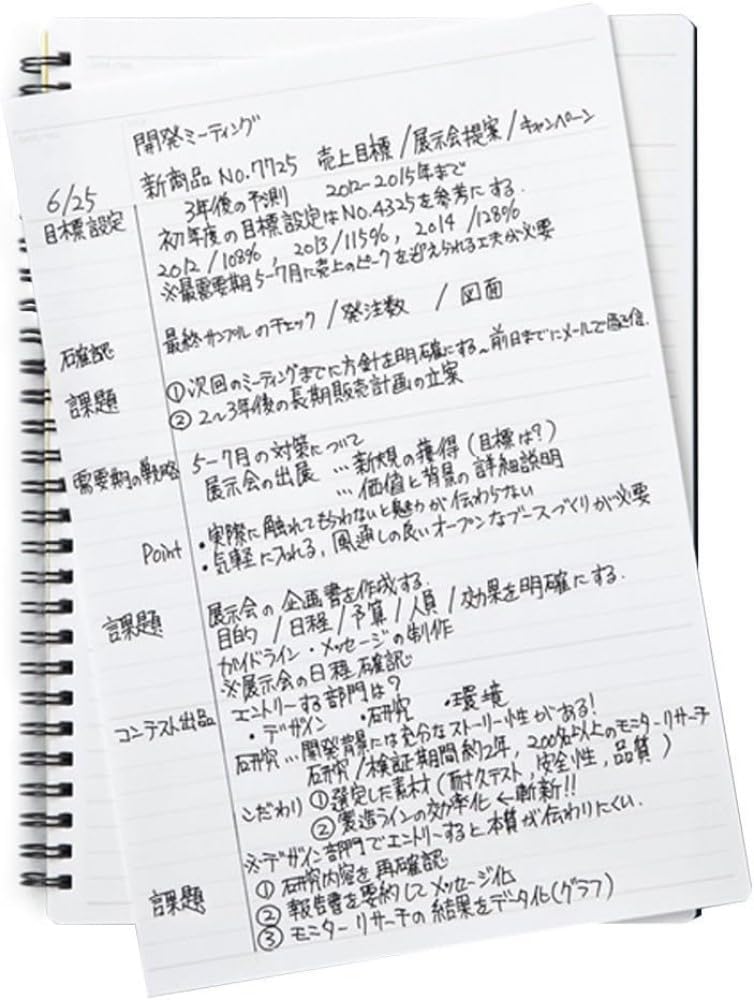 開発ミーティング
6/25 新商品 No.7725 売上目標/展示会提案/キャンペーン
3年後の予測 2012-2015年まで
目標設定 初年度の目標設定はNo.4325を参考にする.
2012/108%, 2013/115%, 2014/128%
※最需要期5-7月に売上のピークを迎えられる工夫が必要
確認 最終サンプルのチェック/発注数 /図面
課題 ①次回のミーティングまでに方針を明確にする~前日までにメールで配信.
②2~3年後の長期販売計画の立案
需要期の戦略 5-7月の対策について
展示会の出展 …新規の獲得(目標は?)
…価値と背景の詳細説明
Point ・実際に触れてもらわないと魅力が伝わらない
・気軽に入れる, 風通しの良いオープンなブースづくりが必要
課題 展示会の企画書を作成する.
目的/日程/予算/人員/効果を明確にする.
ガイドライン・メッセージの制作
※展示会の日程確認
コンテスト出品 エントリーする部門は?
・デザイン ・研究 ・環境
研究…開発背景には充分なストーリー性がある!
研究/検証期間約2年, 200名以上のモニターリサーチ
こだわり ①選定した素材(耐久テスト, 安全性, 品質)
②製造ラインの効率化←斬新!!
※デザイン部門でエントリーすると本質が伝わりにくい.
課題 ①研究内容を再確認
②報告書を要約してメッセージ化
③モニターリサーチの結果をデータ化(グラフ)